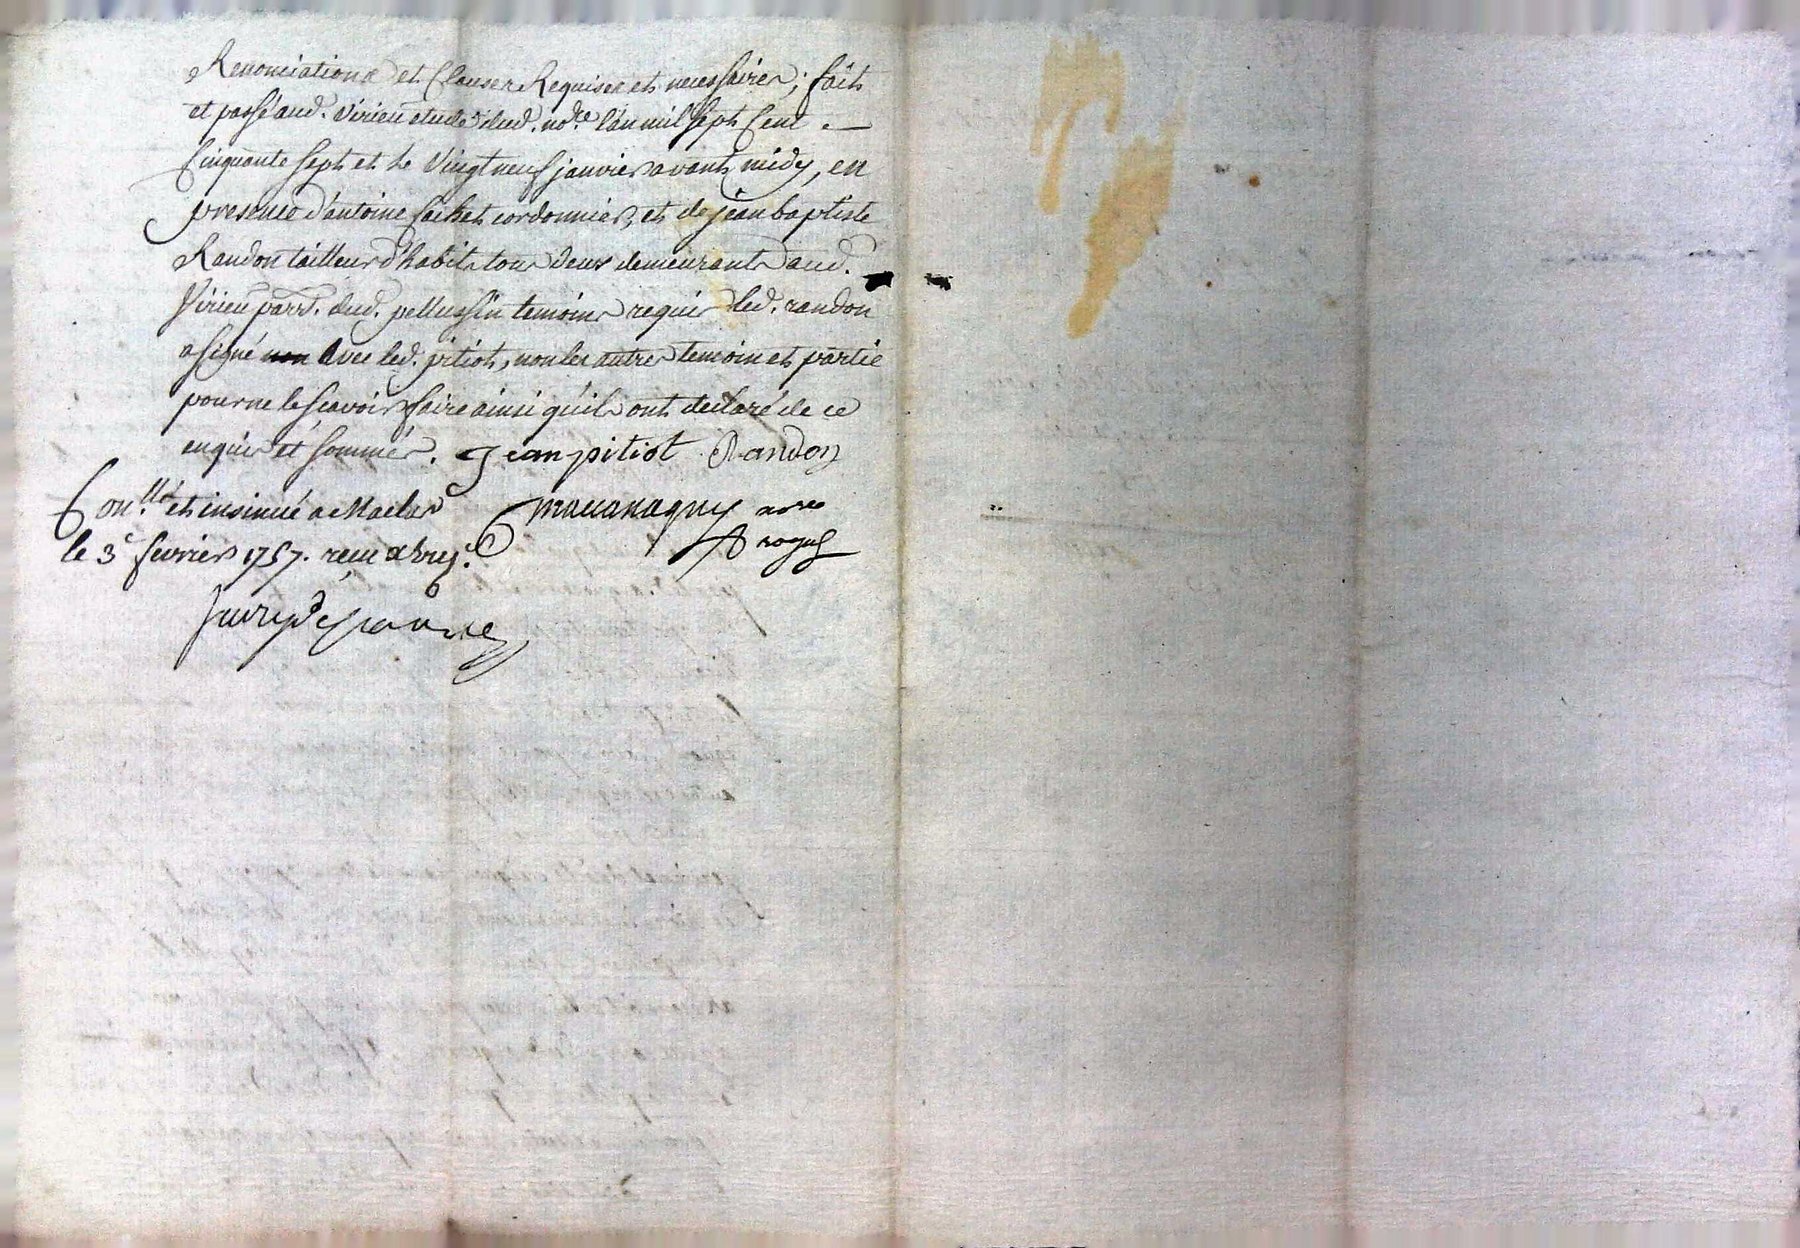 Renonciations et Clauses Requises et necessaires; fait
et passé aud. Virieu etude dud. nore. l'an mil sept Cent
Cinquante sept et le Vingt neuf janvier avant midy, en
presence d'antoine cordonnier, et de jean baptiste
Randon tailleur d'habits tous deux demeurants aud.
Virieu parr. dud. pellussin temoins requis led. randon
a signé non avec led. pitiot, non les autres temoin et partie
pour ne le scavoir faire ainsi qu'ils ont declaré de ce
enquis et sommés. Jean pitiot Randon
Conllé. et insinué a Maclas
le 3e fevrier 1757. reçu